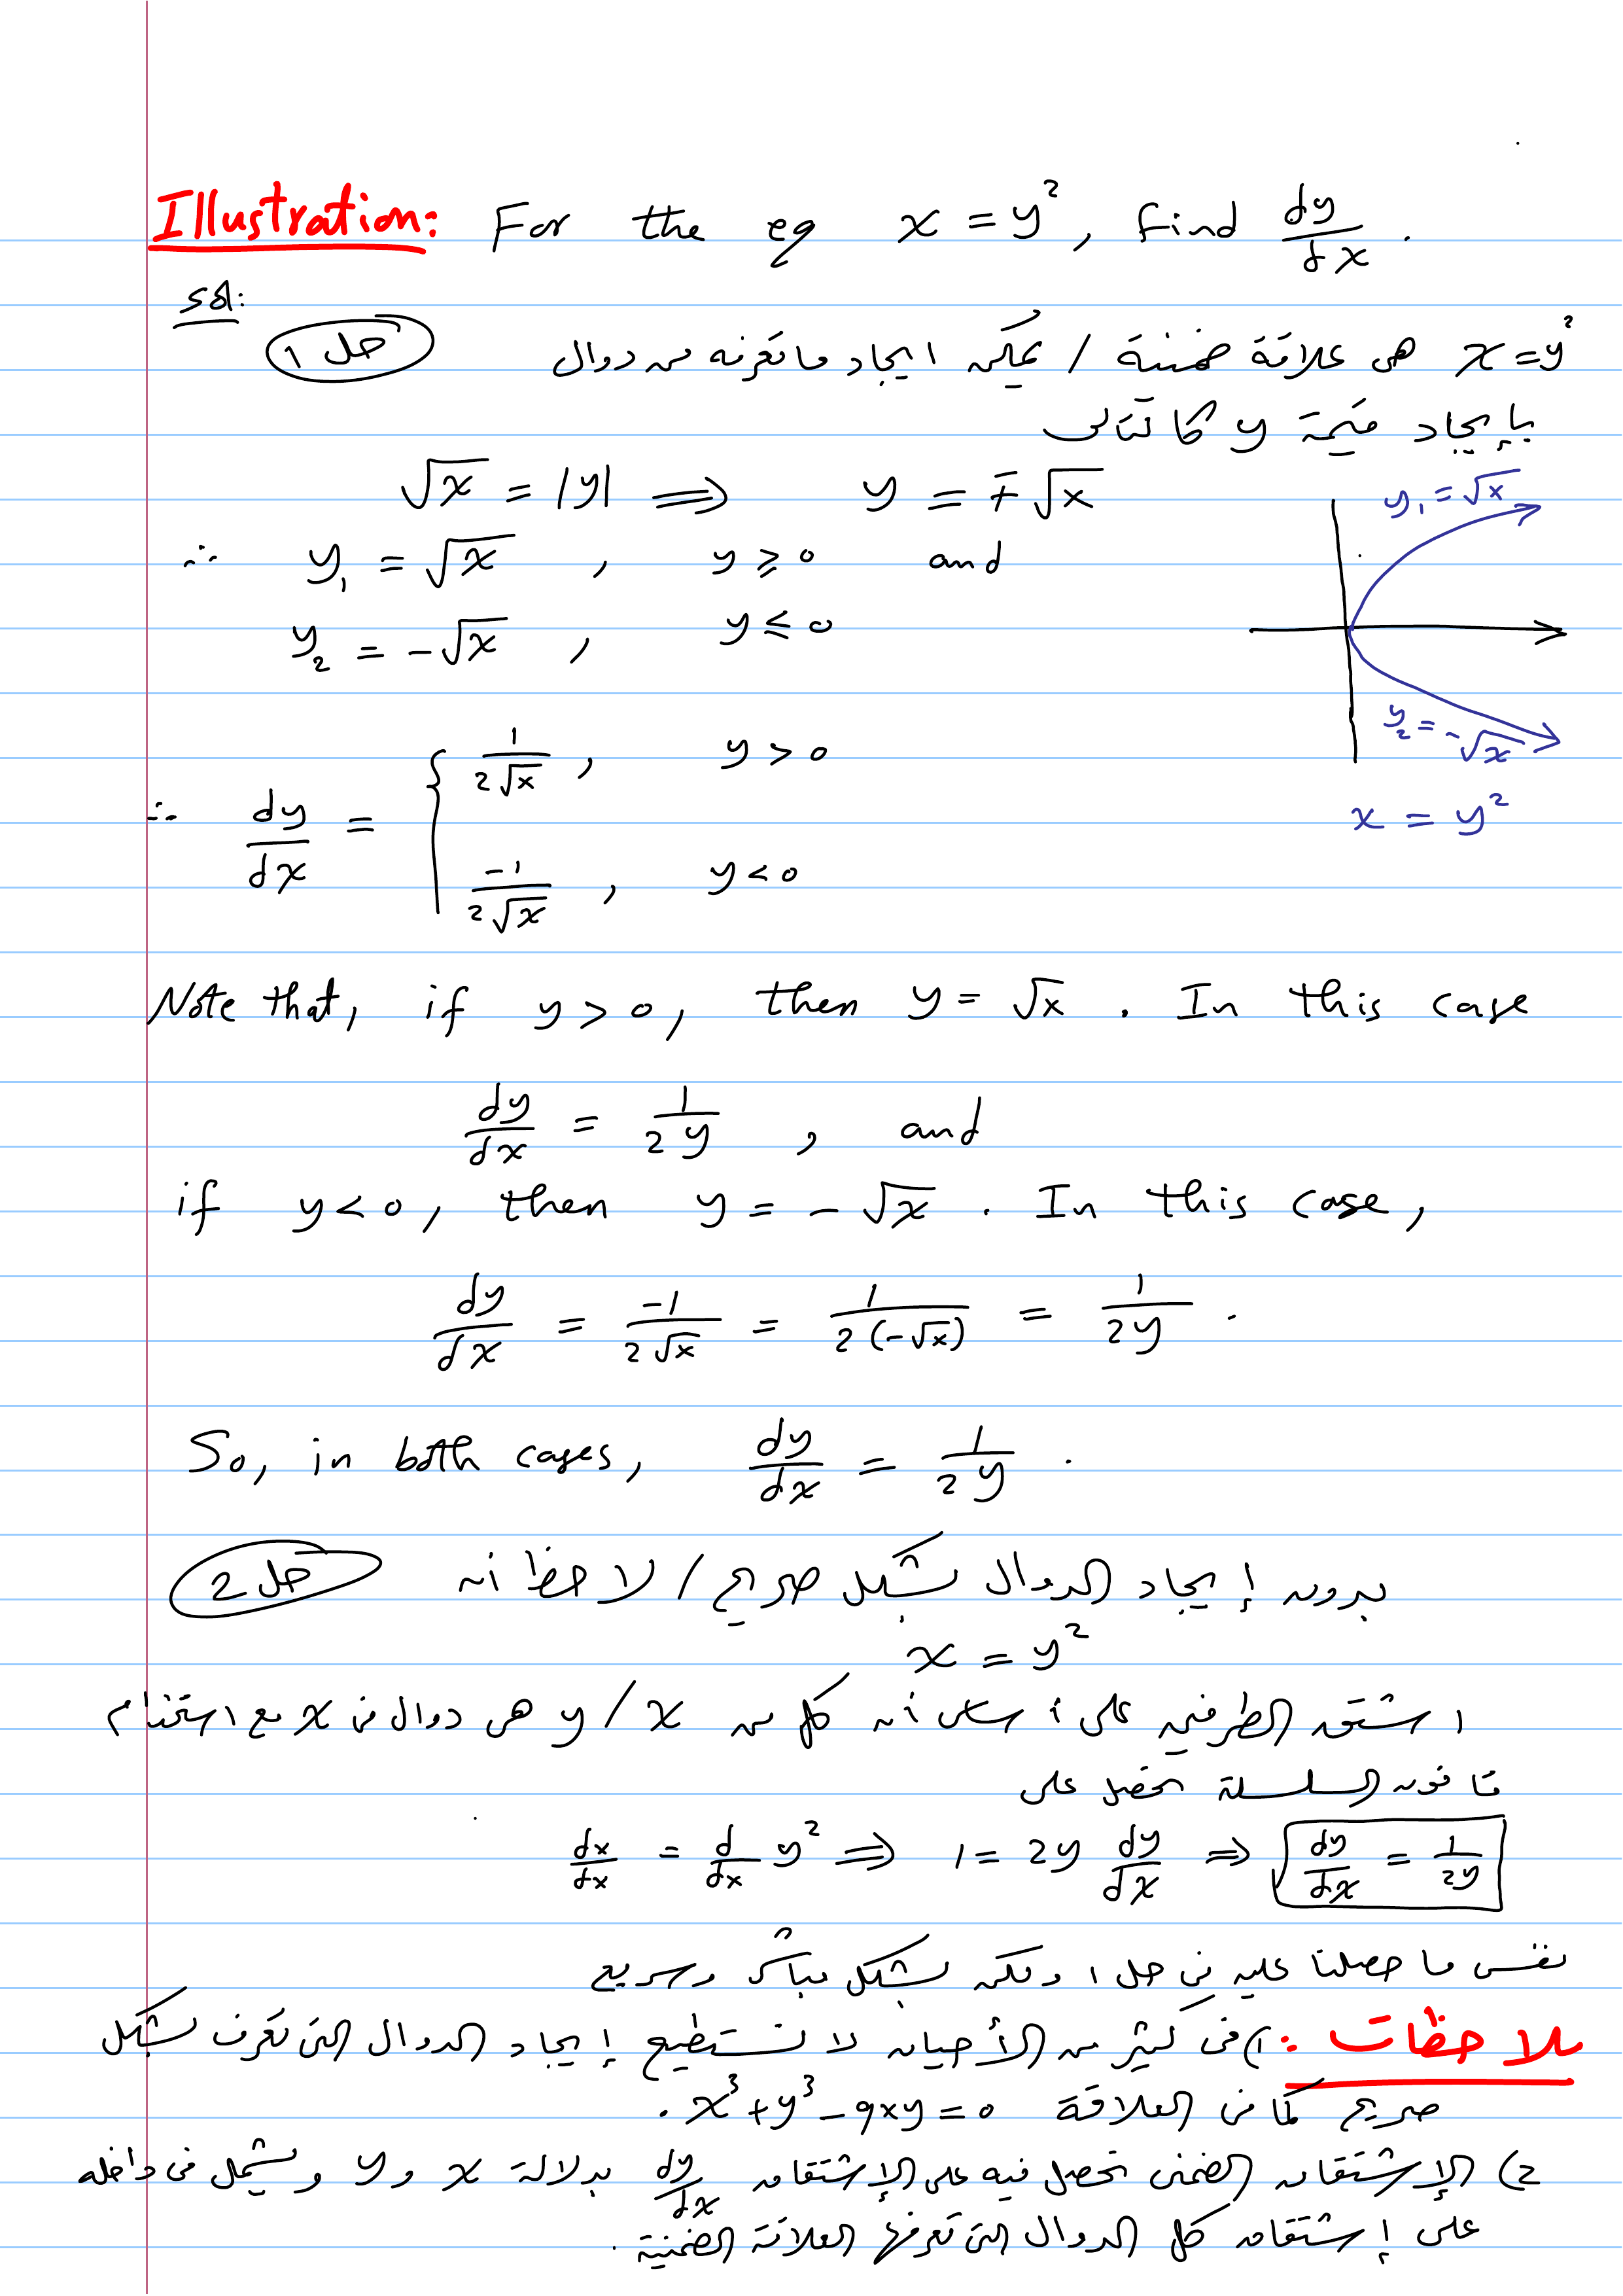 Illustration: For the eq x = y², find dy/dx .
sol:
حل 1
x = y² هي علاقة ضمنية / يمكن ايجاد ما تعرفه من دوال
بإيجاد قيمة y كالتالي
√x = |y| ⟹ y = ∓√x
∴ y₁ = √x , y ≥ 0 and
y₂ = -√x , y ≤ 0
y₁ = √x
y₂ = -√x
x = y²
∴ dy/dx = { 1/(2√x) , y > 0
-1/(2√x) , y < 0
Note that, if y > 0, then y = √x . In this case
dy/dx = 1/(2y) , and
if y < 0, then y = -√x . In this case,
dy/dx = -1/(2√x) = 1/(2(-√x)) = 1/(2y) .
So, in both cases, dy/dx = 1/(2y) .
حل 2
بدون إيجاد الدوال بشكل صريح / لاحظ أن
x = y²
اشتق الطرفين على أساس أن كل من x / y هي دوال في x مع استخدام
قانون السلسلة تحصل على
dx/dx = d/dx y² ⟹ 1 = 2y dy/dx ⟹ dy/dx = 1/(2y)
نفس ما حصلنا عليه في حل 1 ولكن بشكل مباشر وسريع
ملاحظات : 1) في كثير من الأحيان لا نستطيع إيجاد الدوال التي تعرف بشكل
صريح كما في العلاقة x³ + y³ - 9xy = 0 .
2) الإشتقاق الضمني تحصل فيه على الإشتقاق dy/dx بدلالة x و y ويشمل في داخله
على إشتقاق كل الدوال التي تعرفها العلاقة الضمنية .